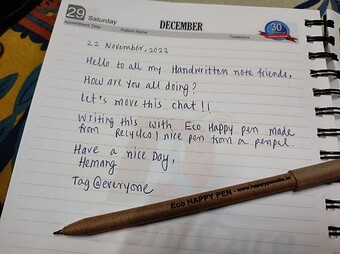 29 Saturday
DECEMBER
Appointment Time
Patient Name
Treatment
30
22 November, 2023
Hello to all my Handwritten note friends,
How are you all doing?
Let's move this chat!!
Writing this with Eco Happy pen made
from recycled nice pen from a penpal.
Have a nice Day,
Hemang
Tag @everyone
Eco HAPPY PEN - www.happypendia.in